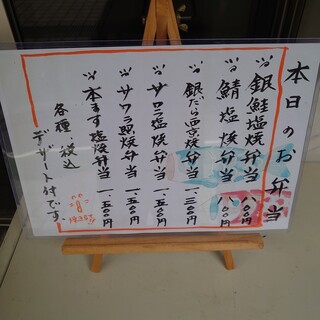 本日のお弁当
※銀鮭塩焼弁当 八〇〇円
※鯖塩焼弁当 八〇〇円
※銀だら西京焼弁当 一、三〇〇円
※サワラ塩焼弁当 一、五〇〇円
※サワラ西京焼弁当 一、五〇〇円
※本ます塩焼弁当 一、五〇〇円
各種、税込
デザート付です。